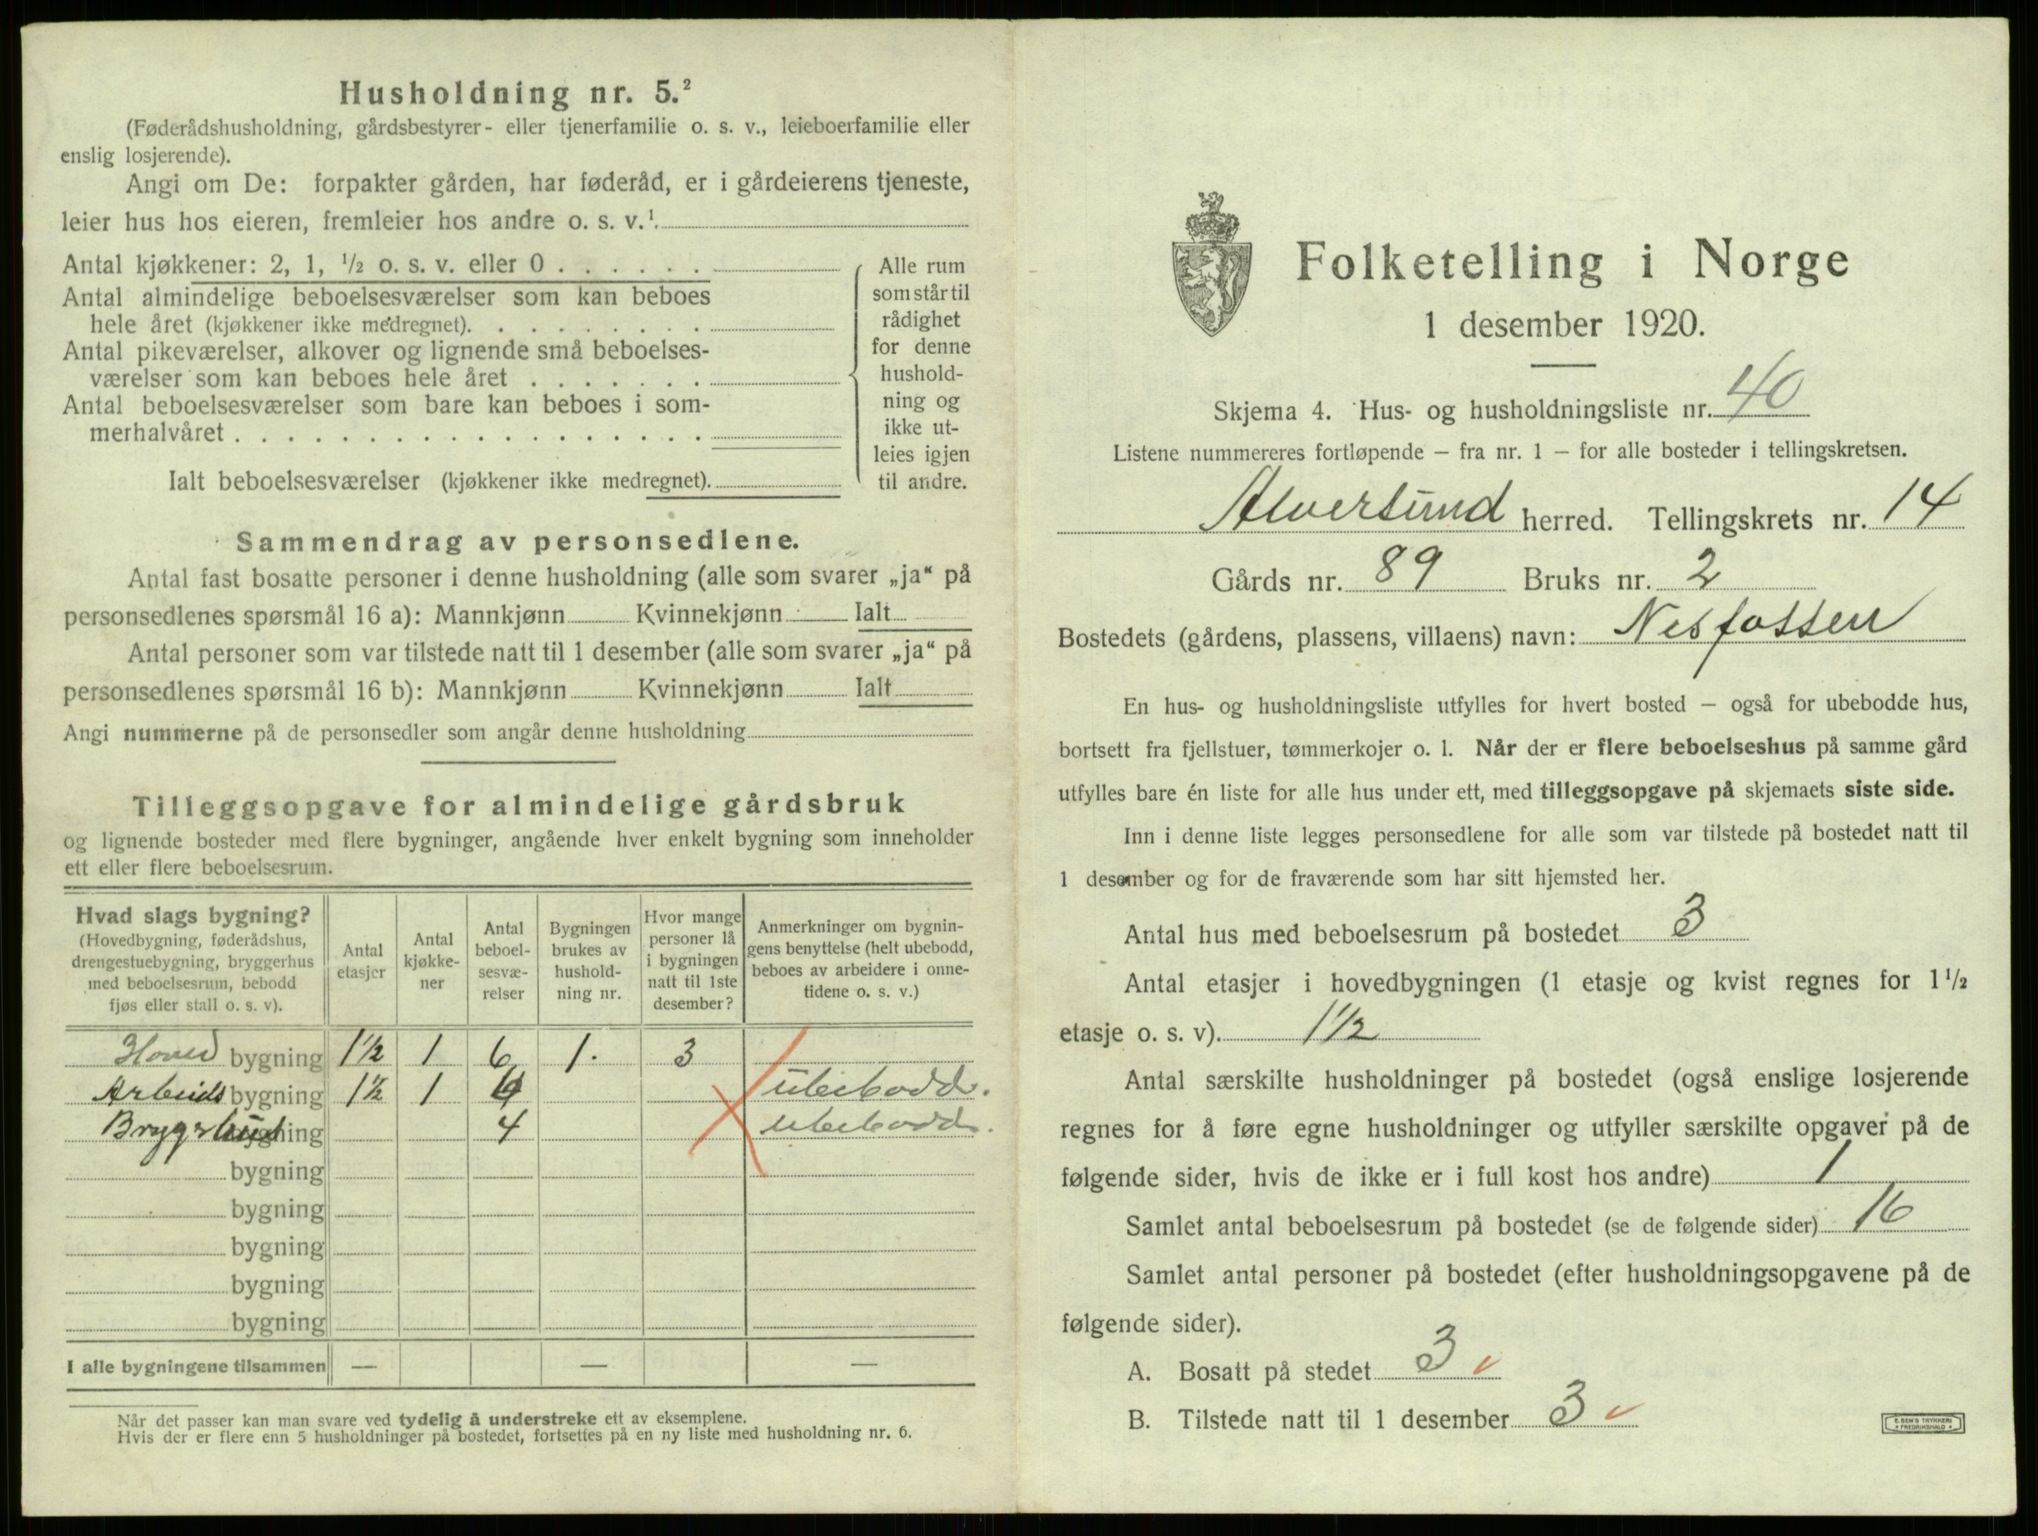 Husholdning nr. 5.²
(Føderådshusholdning, gårdsbestyrer- eller tjenerfamilie o. s. v., leieboerfamilie eller
enslig losjerende).
Angi om De: forpakter gården, har føderåd, er i gårdeierens tjeneste,
leier hus hos eieren, fremleier hos andre o. s. v.¹
Antal kjøkkener: 2, 1, ½ o. s. v. eller 0 . . . . . .
Antal almindelige beboelsesværelser som kan beboes
hele året (kjøkkener ikke medregnet). . . . . . . . .
Antal pikeværelser, alkover og lignende små beboelses-
værelser som kan beboes hele året . . . . . . .
Antal beboelsesværelser som bare kan beboes i som-
merhalvåret . . . . . . . . . . . . . . . . . .
Ialt beboelsesværelser (kjøkkener ikke medregnet).
Alle rum
som står til
rådighet
for denne
hushold-
ning og
ikke ut-
leies igjen
til andre.
Sammendrag av personsedlene.
Antal fast bosatte personer i denne husholdning (alle som svarer „ja“ på
personsedlenes spørsmål 16 a): Mannkjønn Kvinnekjønn Ialt
Antal personer som var tilstede natt til 1 desember (alle som svarer „ja“ på
personsedlenes spørsmål 16 b): Mannkjønn Kvinnekjønn Ialt
Angi nummerne på de personsedler som angår denne husholdning
Tilleggsopgave for almindelige gårdsbruk
og lignende bosteder med flere bygninger, angående hver enkelt bygning som inneholder
ett eller flere beboelsesrum.
Hvad slags bygning?
(Hovedbygning, føderådshus,
drengestuebygning, bryggerhus
med beboelsesrum, bebodd
fjøs eller stall o. s. v).
Antal
etasjer
Antal
kjøkke-
ner
Antal
beboel-
sesvæ-
relser
Bygningen
brukes av
hushold-
ning nr.
Hvor mange
personer lå
i bygningen
natt til 1ste
desember?
Anmerkninger om bygnin-
gens benyttelse (helt ubebodd,
beboes av arbeidere i onne-
tidene o. s. v.)
Hoved bygning 1½ 1 6 1. 3
Arbeids bygning 1½ 1 6 ubebodd.
Bryghus bygning 4 ubebodd.
bygning
bygning
bygning
bygning
bygning
I alle bygningene tilsammen — — —
Når det passer kan man svare ved tydelig å understreke ett av eksemplene.
Hvis der er flere enn 5 husholdninger på bostedet, fortsettes på en ny liste med husholdning nr. 6.
Folketelling i Norge
1 desember 1920.
Skjema 4. Hus- og husholdningsliste nr. 40
Listene nummereres fortløpende — fra nr. 1 — for alle bosteder i tellingskretsen.
Alversund herred. Tellingskrets nr. 14
Gårds nr. 89 Bruks nr. 2
Bostedets (gårdens, plassens, villaens) navn: Nesfossen
En hus- og husholdningsliste utfylles for hvert bosted — også for ubebodde hus,
bortsett fra fjellstuer, tømmerkojer o. l. Når der er flere beboelseshus på samme gård
utfylles bare én liste for alle hus under ett, med tilleggsopgave på skjemaets siste side.
Inn i denne liste legges personsedlene for alle som var tilstede på bostedet natt til
1 desember og for de fraværende som har sitt hjemsted her.
Antal hus med beboelsesrum på bostedet 3
Antal etasjer i hovedbygningen (1 etasje og kvist regnes for 1½
etasje o. s. v). 1½
Antal særskilte husholdninger på bostedet (også enslige losjerende
regnes for å føre egne husholdninger og utfyller særskilte opgaver på de
følgende sider, hvis de ikke er i full kost hos andre) 1
Samlet antal beboelsesrum på bostedet (se de følgende sider) 16
Samlet antal personer på bostedet (efter husholdningsopgavene på de
følgende sider).
A. Bosatt på stedet 3 v
B. Tilstede natt til 1 desember 3 v
E. SEM'S TRYKKERI
FREDRIKSHALD